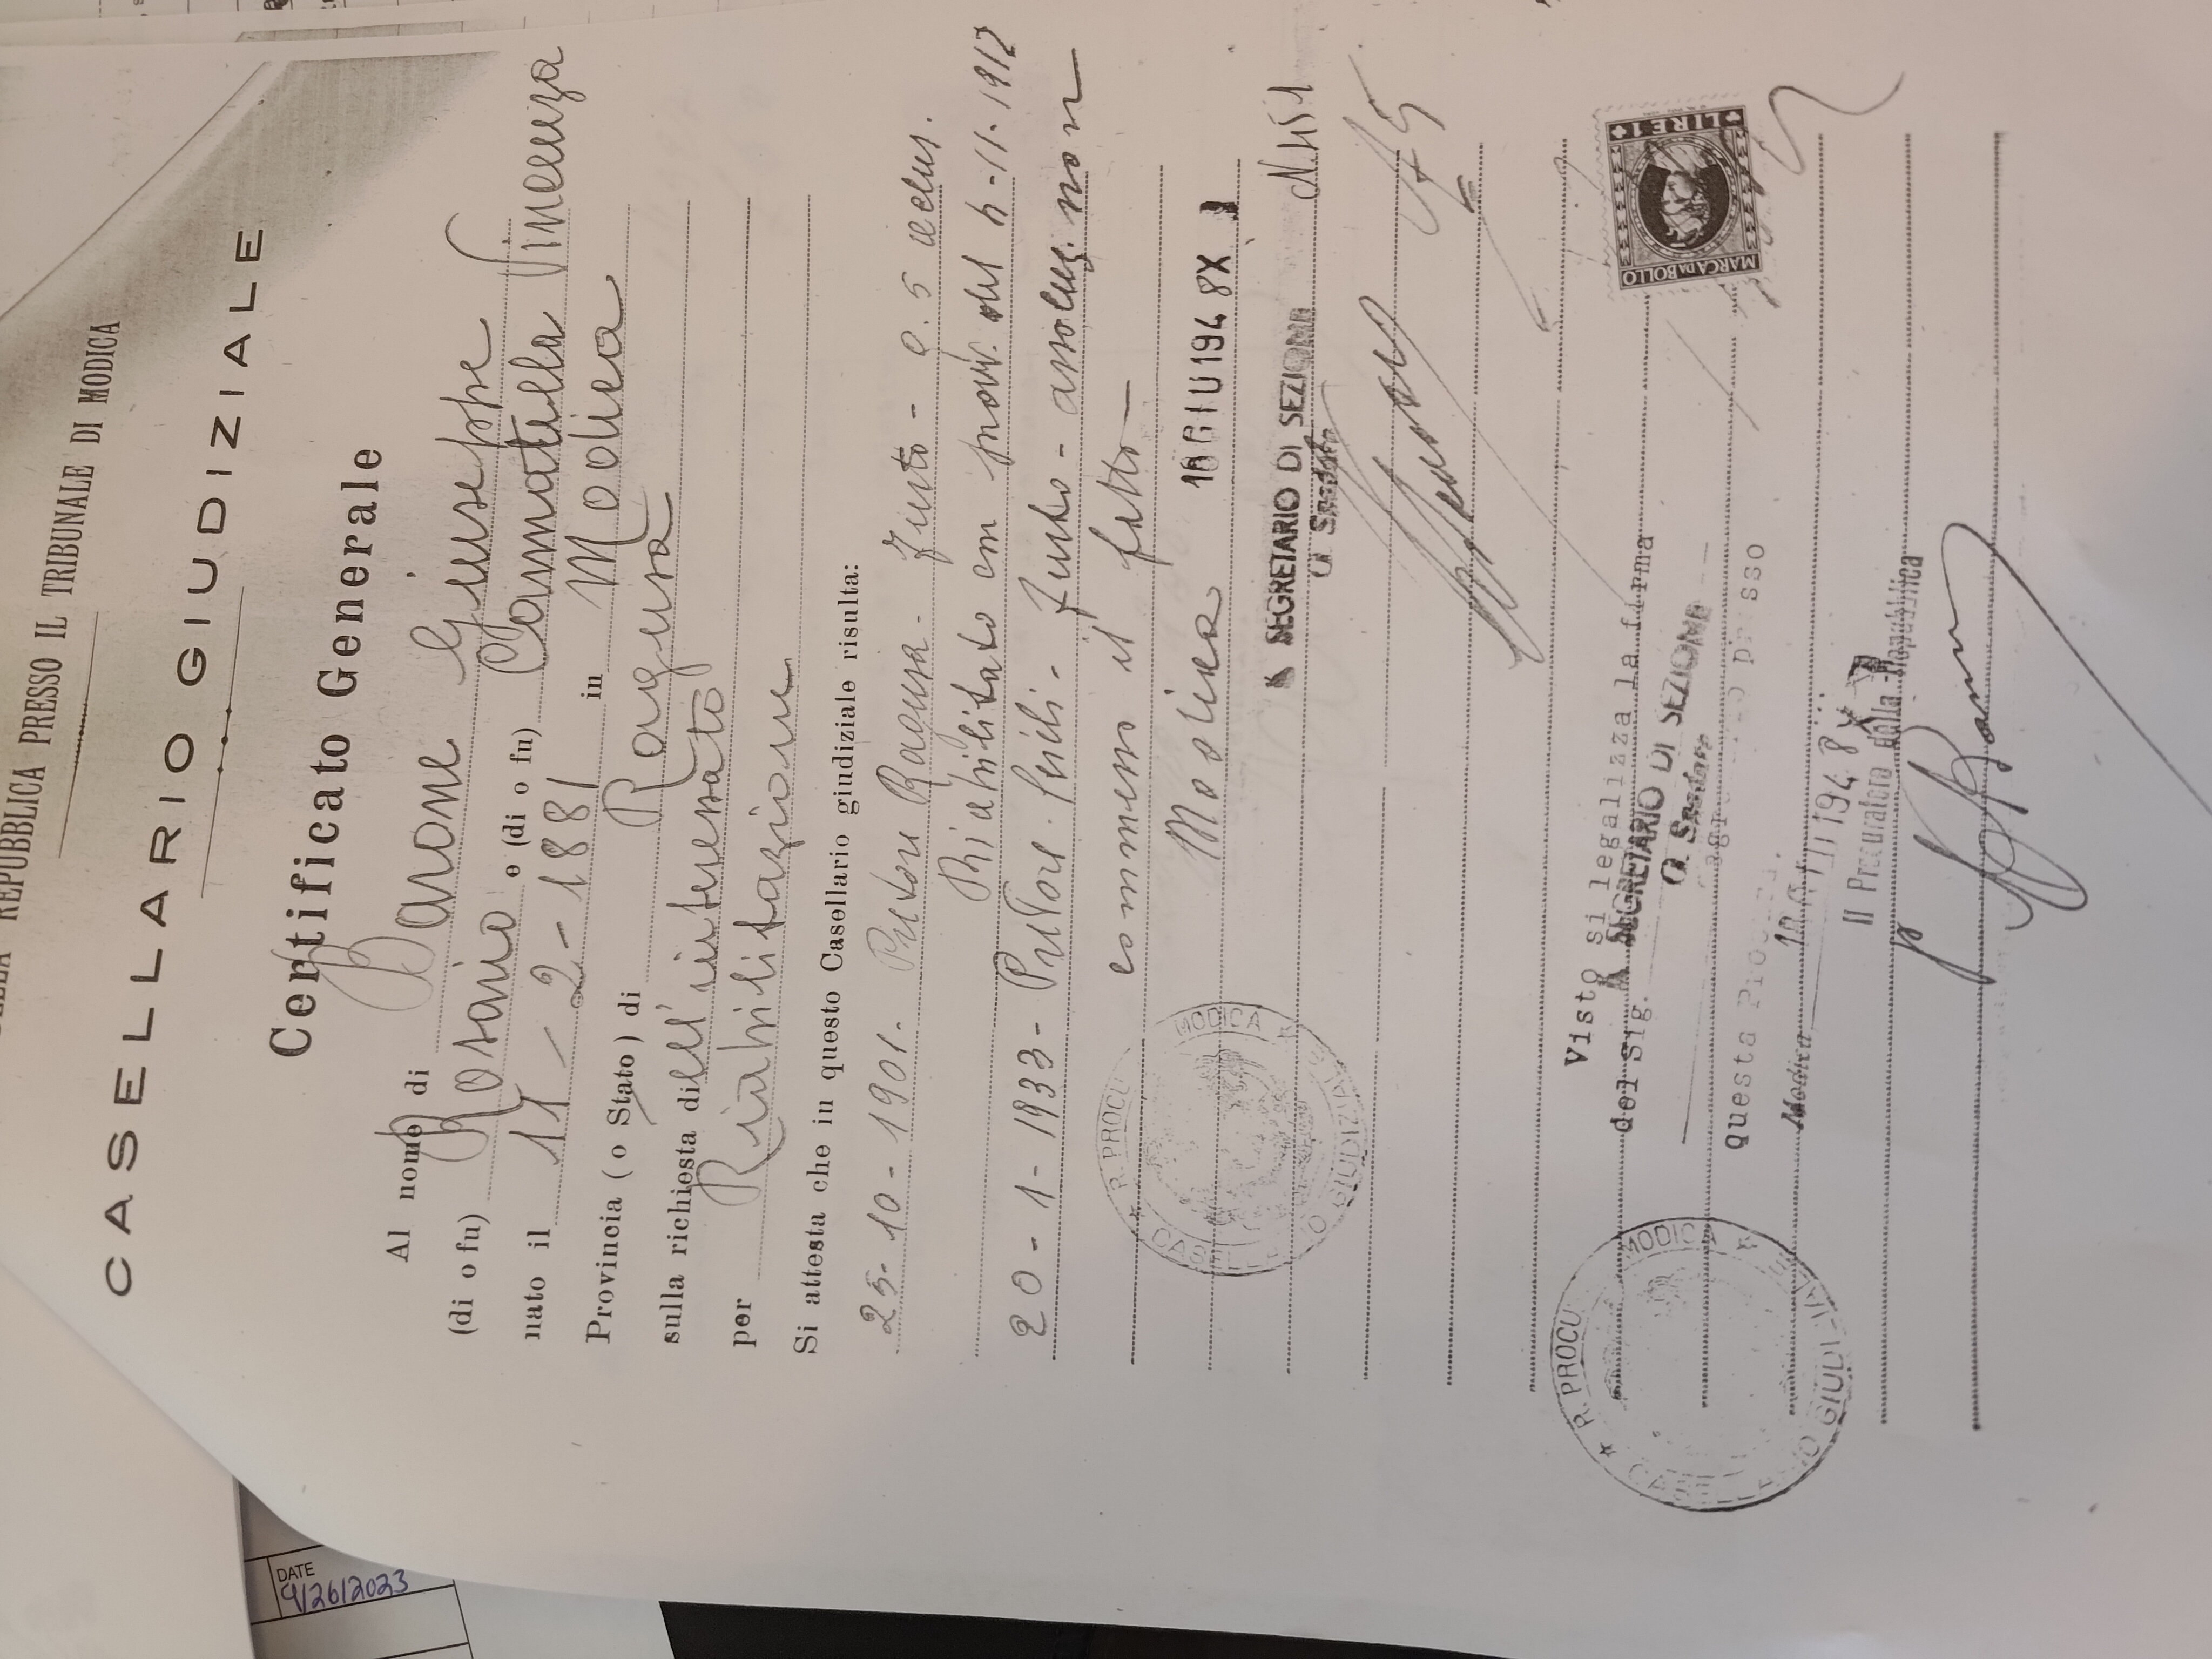 DELLA REPUBBLICA PRESSO IL TRIBUNALE DI MODICA
CASELLARIO GIUDIZIALE
Certificato Generale
Al nome di Barone Giuseppe
(di o fu) Rosario e (di o fu) Cannatella Vincenza
nato il 11-2-1881 in Modica
Provincia (o Stato) di Ragusa
sulla richiesta dell'interessato
per Riabilitazione
Si attesta che in questo Casellario giudiziale risulta:
25-10-1901- Pretore Ragusa - Furto - g. 5 reclus.
Riabilitato con provv. del -11-1912
20-1-1933- Pretore Scicli - furto - assoluz. non
commesso il fatto
Modica 18 GIU 194 8
SEGRETARIO DI SEZIONE
N. 451
G. Spadaro
R. PROCU MODICA
CASELLARIO GIUDIZIALE
Visto si legalizza la firma
del Sig. SEGRETARIO DI SEZIONE
G. Spadaro
presso
questa Procura.
Modica 18 GIU 194 8
Il Procuratore della Repubblica
R. PROCU MODICA
CASELLARIO GIUDIZIALE
MARCA DA BOLLO
LIRE 1
DATE
9/26/2023